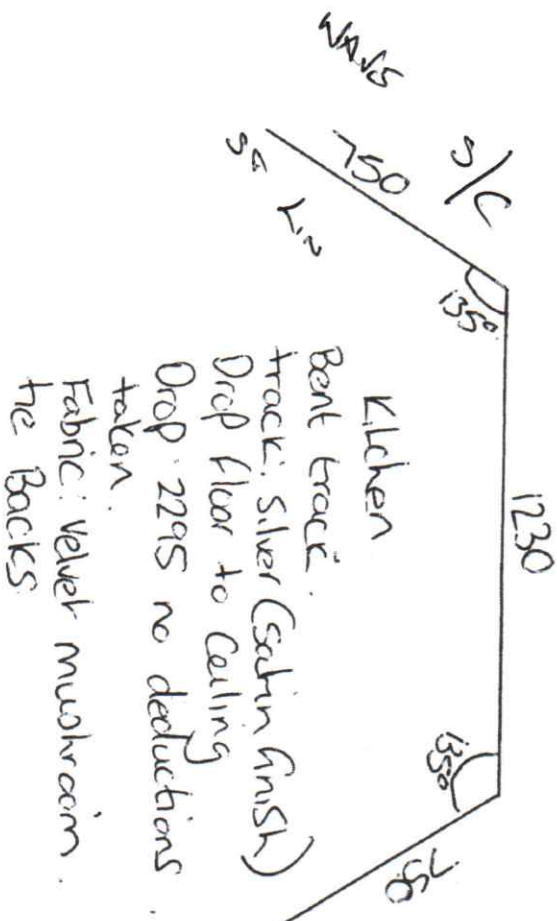 S/C
750
135°
1230
135°
750
Kitchen
Bent track.
track: silver (satin finish)
Drop floor to Ceiling
Drop: 2295 no deductions
taken.
Fabric: velvet mushroom.
tie Backs